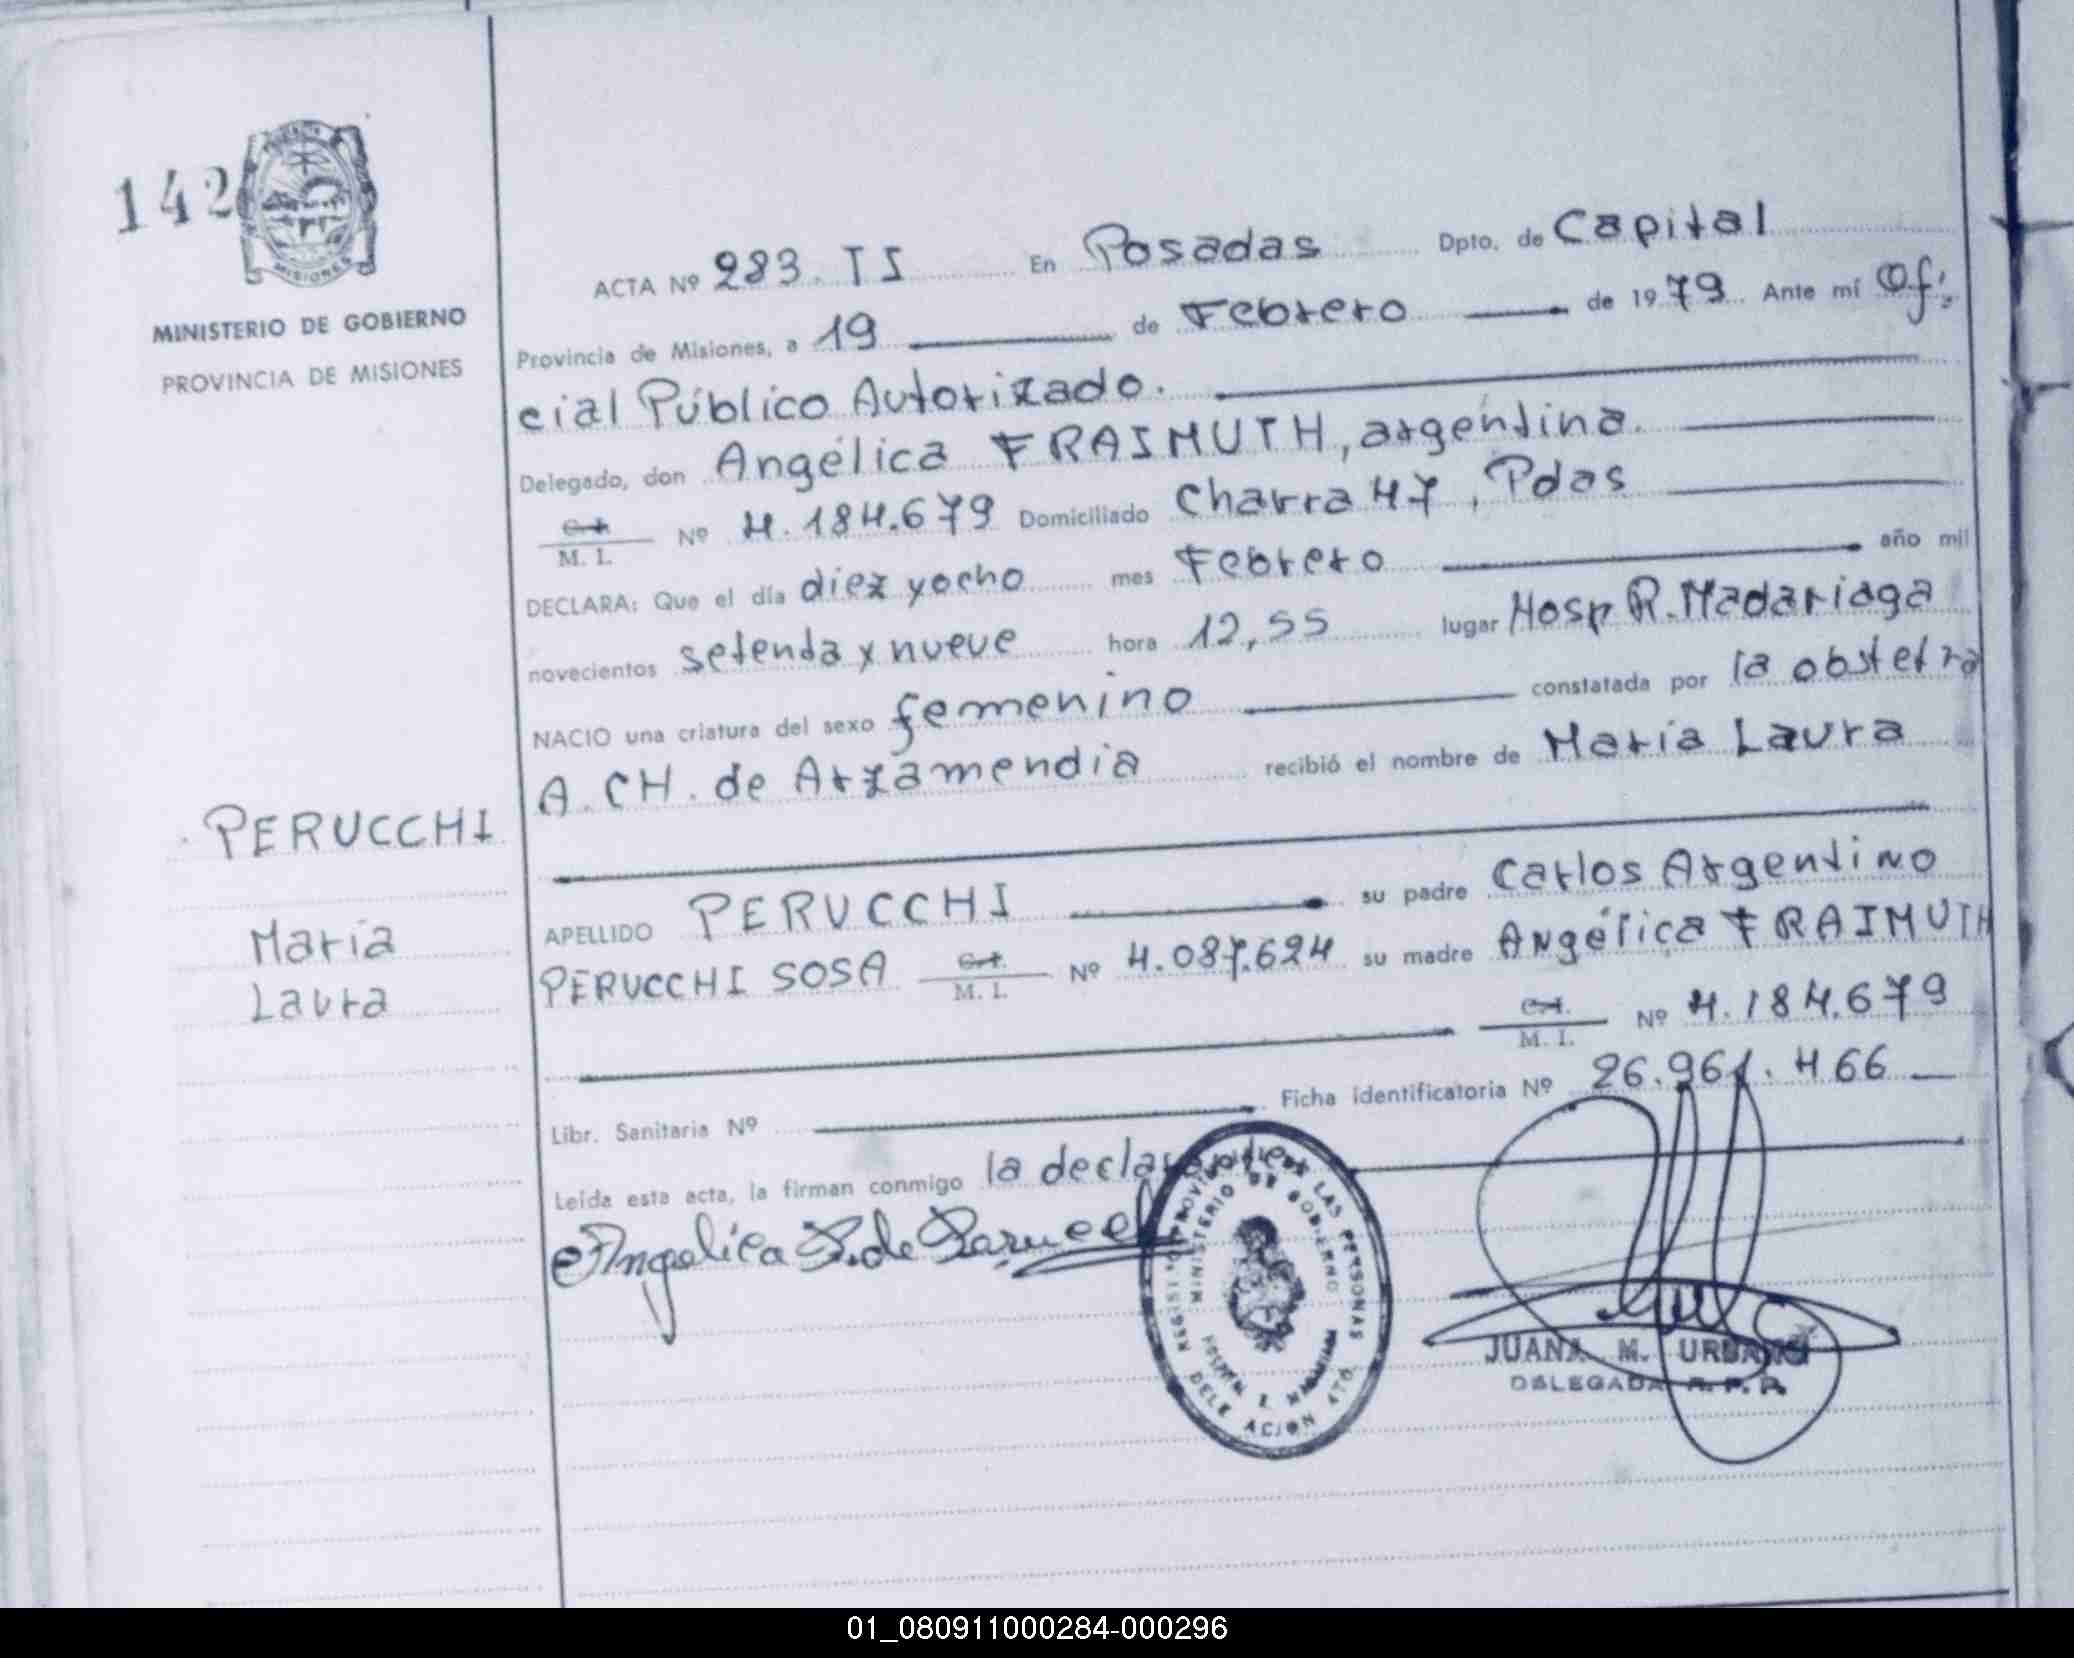 142
MISIONES
MINISTERIO DE GOBIERNO
PROVINCIA DE MISIONES
ACTA Nº 283. TI En Posadas Dpto. de Capital
Provincia de Misiones, a 19 de Febrero de 1979 Ante mí Ofi
cial Público Autorizado.
Delegado, don Angélica FRAIMUTH, argentina.
C.I. / M. I. Nº 4.184.679 Domiciliado Chacra 47, Pdas
DECLARA: Que el día diez yocho mes Febrero año mil
novecientos setenta y nueve hora 12,55 lugar Hosp R. Madariaga
NACIO una criatura del sexo femenino constatada por la obstetra
A. CH. de Arzamendia recibió el nombre de María Laura
PERUCCHI
María
Laura
APELLIDO PERUCCHI su padre Carlos Argentino
PERUCCHI SOSA C.I. / M. I. Nº 4.087.624 su madre Angélica FRAIMUTH
C.I. / M. I. Nº 4.184.679
Libr. Sanitaria Nº Ficha identificatoria Nº 26.961.466
Leída esta acta, la firman conmigo la declarante
Angelica F. de Perucchi
REGIST PROVINCIAL DE LAS PERSONAS
MINISTERIO DE GOBIERNO
HOSPITAL R. MADARIAGA
DELEGACION 4TO.
JUANA M. URBANO
DELEGADA R. P. P.
01_080911000284-000296